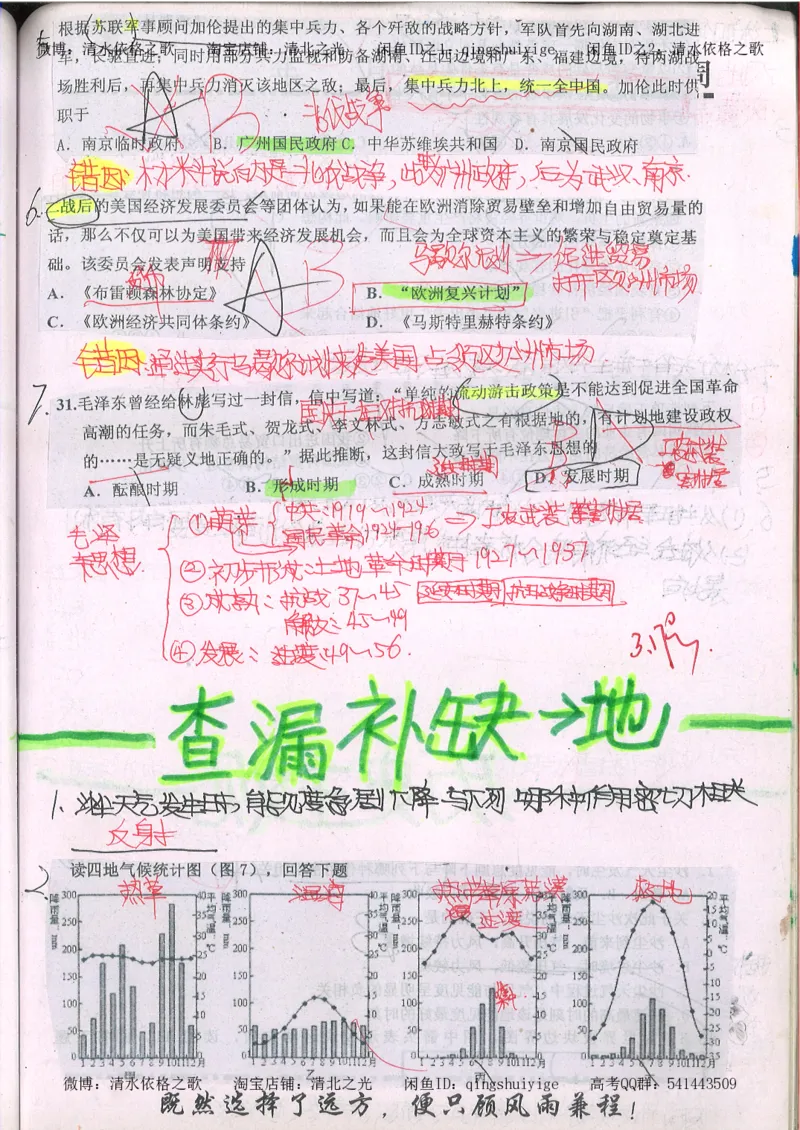 根据苏联军事顾问加伦提出的集中兵力、各个歼敌的战略方针，军队首先向湖南、湖北进
微博：清水依格之歌 淘宝店铺：清北之光 闲鱼ID之1：qingshuiyige 闲鱼ID之2：清水依格之歌
军，长驱直进；同时用部分兵力监视和防备湖南、江西边境和广东、福建边境，待两湖战
场胜利后，再集中兵力消灭该地区之敌；最后，集中兵力北上，统一全中国。加伦此时供
职于
北伐战争
A．南京临时政府 B．广州国民政府 C．中华苏维埃共和国 D．南京国民政府
错因：
6.
二战后的美国经济发展委员会等团体认为，如果能在欧洲消除贸易壁垒和增加自由贸易量的
话，那么不仅可以为美国带来经济发展机会，而且会为全球资本主义的繁荣与稳定奠定基
础。该委员会发表声明支持
马歇尔计划⇒促进贸易
打开欧洲市场
A．《布雷顿森林协定》 B．“欧洲复兴计划”
C．《欧洲经济共同体条约》 D．《马斯特里赫特条约》
错因：通过实行马歇尔计划来使美国占领欧洲市场
7.
31.毛泽东曾经给林彪写过一封信，信中写道：“单纯的流动游击政策是不能达到促进全国革命
高潮的任务，而朱毛式、贺龙式、李文林式、方志敏式之有根据地的，有计划地建设政权
的……是无疑义地正确的。”据此推断，这封信大致写于毛泽东思想的
工农武装割据
A．酝酿时期 B．形成时期 C．成熟时期 D．发展时期
毛泽东思想
①萌芽 中共：1919～1924
国民革命1924-1926 ⇒工农武装割据
②初步形成：土地革命时期1927～1937
③成熟：抗战37～45 延安时期 抗日战争时期
解放：45～49
④发展：过渡：49～56.
3.17
查漏补缺→地
1、沙尘天气发生时，能见度急剧下降，与下列哪种作用密切相关
反射
2、
读四地气候统计图（图 7），回答下题
热草
温海
热带草原荒漠
过渡
极地
降雨量，mm 平均气温，℃
300 250 200 150 100 50 0
40 35 30 25 20 15 10 5 0
1 2 3 4 5 6 7 8 9 10 11 12月
甲 乙 丙 丁
微博：清水依格之歌 淘宝店铺：清北之光 闲鱼ID：qingshuiyige 高考QQ群：541443509
既然选择了远方，便只顾风雨兼程！